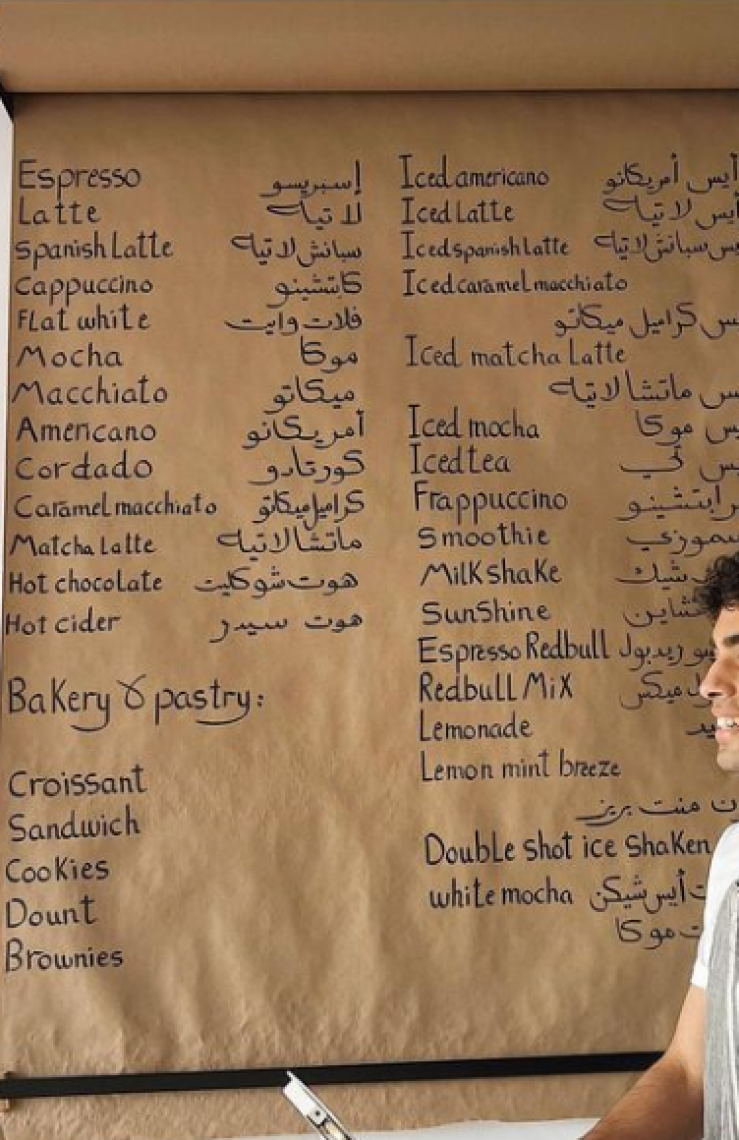 Espresso إسبريسو
Latte لاتيه
Spanish Latte سبانش لاتيه
Cappuccino كابتشينو
Flat white فلات وايت
Mocha موكا
Macchiato ميكاتو
Americano أمريكانو
Cordado كورتادو
Caramel macchiato كراميل ميكاتو
Matcha Latte ماتشا لاتيه
Hot chocolate هوت شوكليت
Hot cider هوت سيدر
Bakery & pastry:
Croissant
Sandwich
Cookies
Dount
Brownies
Iced americano أيس أمريكانو
Iced Latte أيس لاتيه
Iced spanish Latte سبانش لاتيه
Iced caramel macchiato
كراميل ميكاتو
Iced matcha Latte
ماتشا لاتيه
Iced mocha موكا
Iced tea تي
Frappuccino
Smoothie
Milkshake شيك
SunShine
Espresso Redbull ريدبول
Redbull Mix ميكس
Lemonade
Lemon mint breeze
منت بريز
Double shot ice shaken
white mocha أيس شيكن
موكا